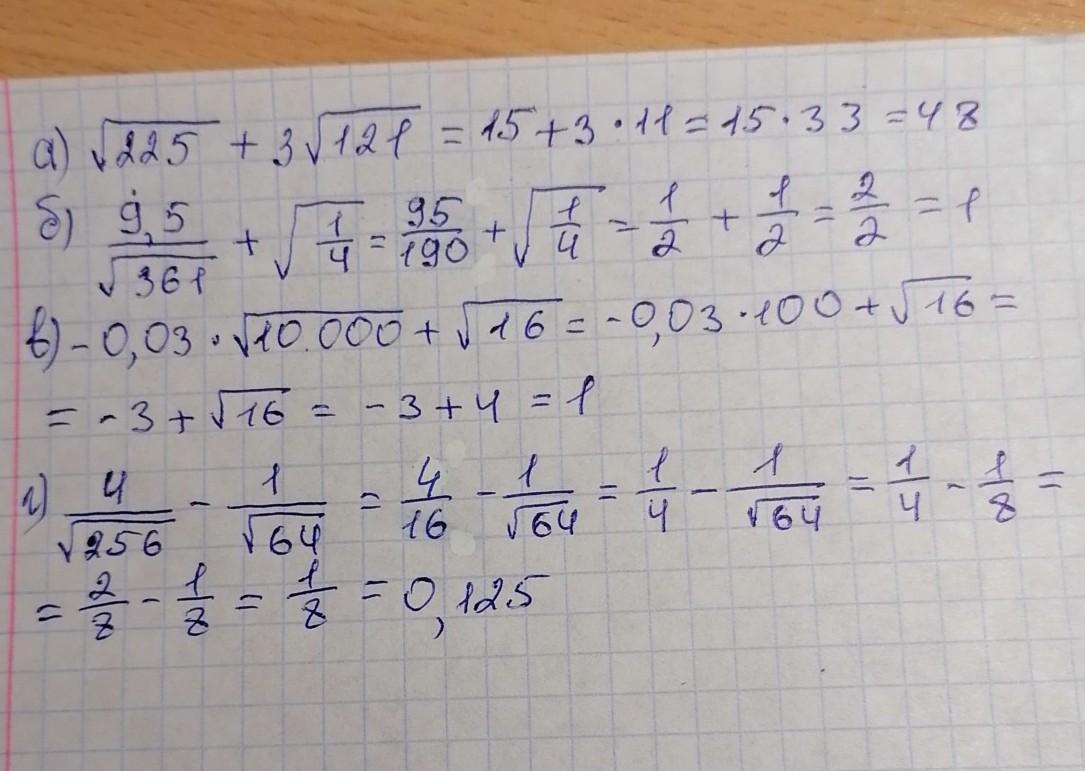 а) √225 + 3√121 = 15 + 3 · 11 = 15 · 33 = 48
б) 9,5/√361 + √(1/4) = 95/190 + √(1/4) = 1/2 + 1/2 = 2/2 = 1
в) - 0,03 · √10.000 + √16 = - 0,03 · 100 + √16 =
= - 3 + √16 = - 3 + 4 = 1
г) 4/√256 - 1/√64 = 4/16 - 1/√64 = 1/4 - 1/√64 = 1/4 - 1/8 =
= 2/8 - 1/8 = 1/8 = 0,125